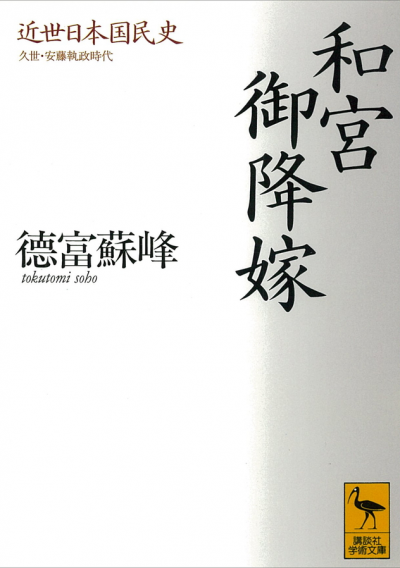 近世日本国民史
久世・安藤執政時代
和宮
御降嫁
德富蘇峰
tokutomi soho
講談社
学術文庫